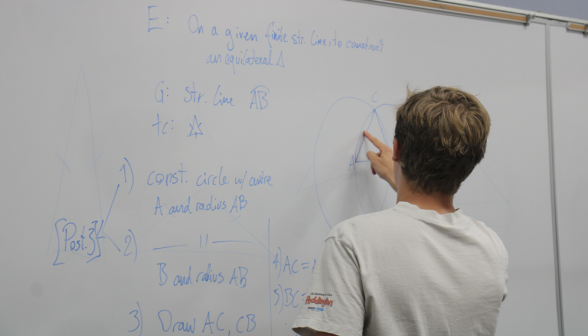 E: On a given finite str. line to construct
an equilateral Δ
G: str. line AB
tc: ☆
1) const. circle w/ centre
A and radius AB
[Post. 3]
2) —— 11 ——
B and radius AB
3) Draw AC, CB
4) AC =
5) BC =
C
A